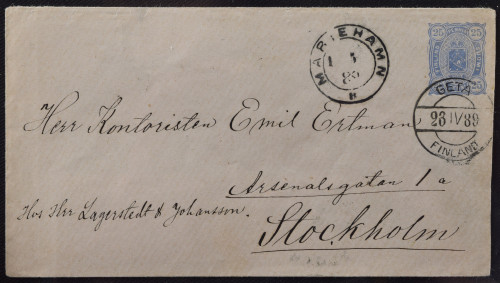 25 25
MARIEHAMN
GETA
23 IV 89
FINLAND
Herr Kontoristen Emil Ertman
Arsenalsgatan 1 a
Hos Herr Lagerstedt & Johansson.
Stockholm